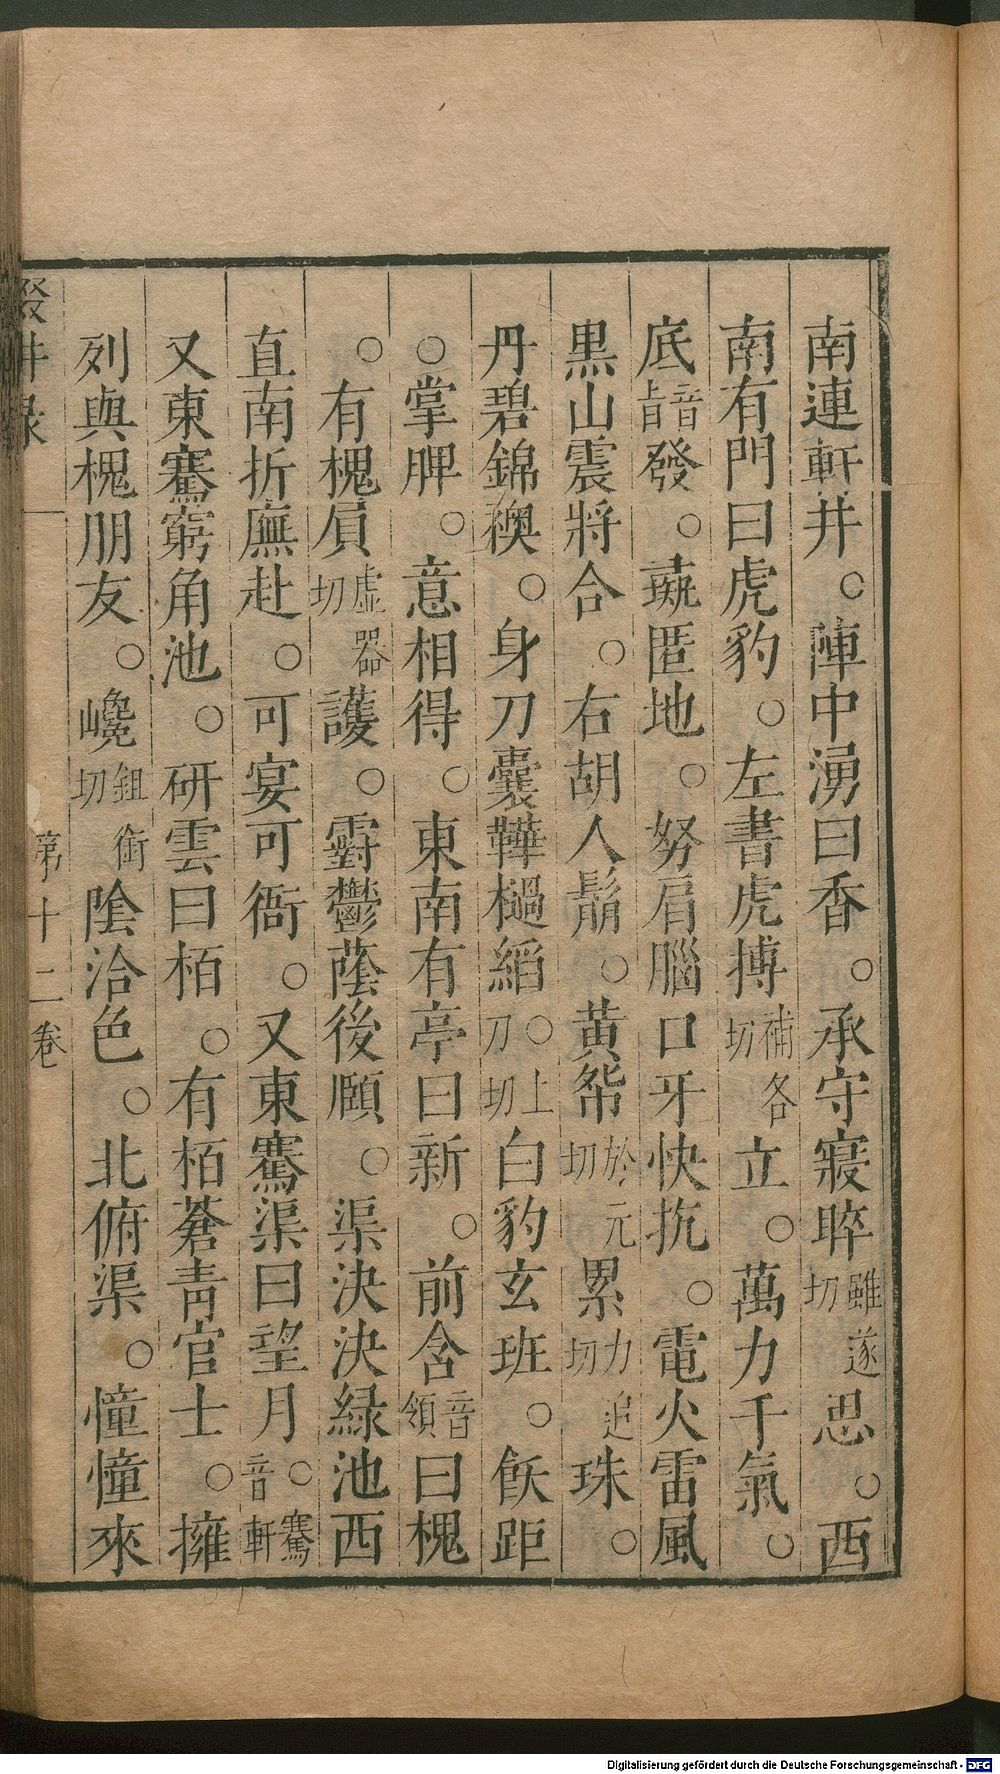 南連軒井。陣中湧曰香。承守寢睟雖遂切思。西
南有門曰虎豹。左書虎搏補各切立。萬力千氣。
底音旨發。彘匿地。努肩腦口牙快抗。電火雷風
黒山震將合。右胡人鬅。黃帤於元切累力追切珠。
丹碧錦襖。身刀囊鞾檛縚。上刀切白豹玄班。飫距
。掌脾。意相得。東南有亭曰新。前含音頷曰槐
。有槐屓虛器切護。霨鬱蔭後頤。渠決決緑池西
直南折廡赴。可宴可衙。又東騫渠曰望月。騫音軒
又東騫窮角池。研雲曰栢。有栢蒼靑官士。擁
列與槐朋友。巉鉏銜切陰洽色。北俯渠。憧憧來
第十二卷
Digitalisierung gefördert durch die Deutsche Forschungsgemeinschaft - DFG